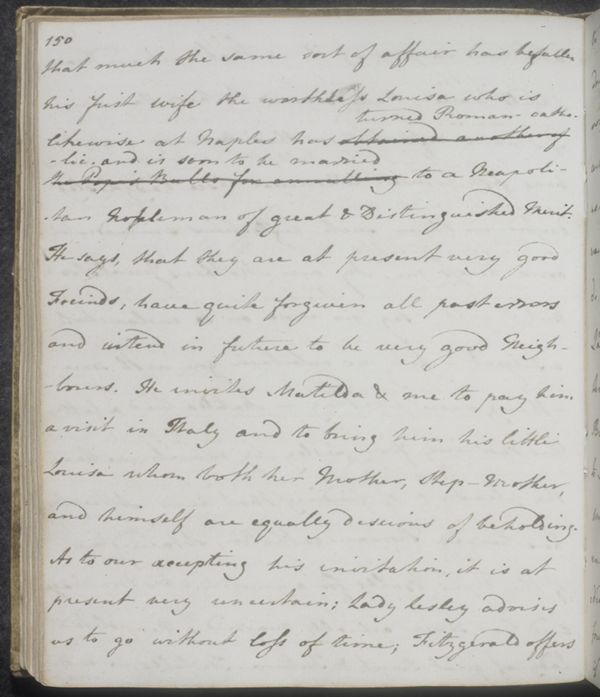 150
that much the same sort of affair has befallen
his first wife the worthless Louisa who is
turned Roman-catho-
likewise at Naples has obtained another of
-lic. and is soon to be married
the Pope's Bulls for annulling to a Neapoli-
-tan Nobleman of great & Distinguished Merit.
He says, that they are at present very good
Freinds, have quite forgiven all past errors
and intend in future to be very good Neigh-
-bours. He invites Matilda & me to pay him
a visit in Italy and to bring him his little
Louisa whom both her Mother, Step-Mother,
and himself are equally desirous of beholding.
As to our accepting his invitation, it is at
present very uncertain; Lady Lesley advises
us to go without loss of time; Fitzgerald offers